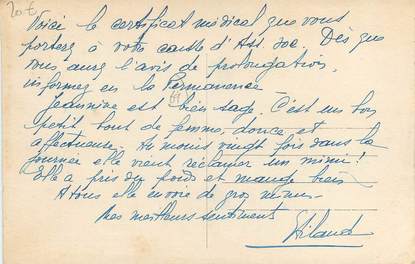 20 €
Voici le certificat médical que vous
porterez à votre caisse d'Ass. soc. Dès que
vous aurez l'avis de prolongation,
informez en la Permanence
Jeannine est bien sage. C'est un bon
petit bout de femme, douce et
affectueuse. Au moins vingt fois dans la
journée elle vient réclamer un mimi !
Elle a pris du poids et mange bien
A tous elle envoie de gros mimis.
Mes meilleurs sentiments